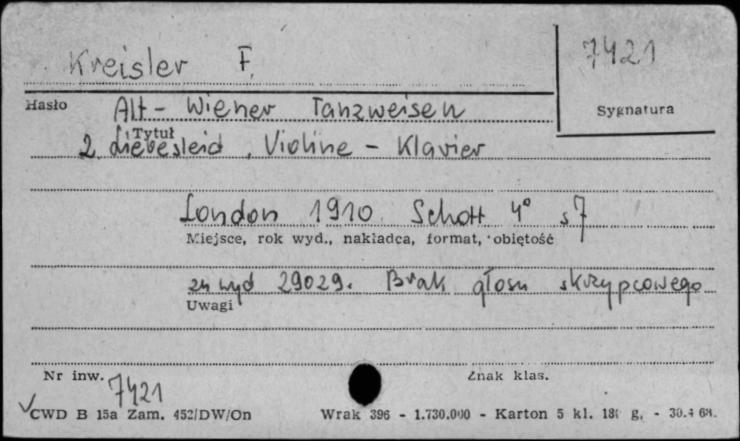 Kreisler F.
7421
Hasło
Alt - Wiener Tanzweisen
Sygnatura
Tytuł
2. Liebesleid, Violine - Klavier
London 1910 Schott 4° s 7
Miejsce, rok wyd., nakładca, format, objętość
zn wyd 29029. Brak głosu skrzypcowego
Uwagi
Nr inw. 7421
Znak klas.
CWD B 15a Zam. 452/DW/On
Wrak 396 - 1.730.000 - Karton 5 kl. 180 g. - 30.4 68.